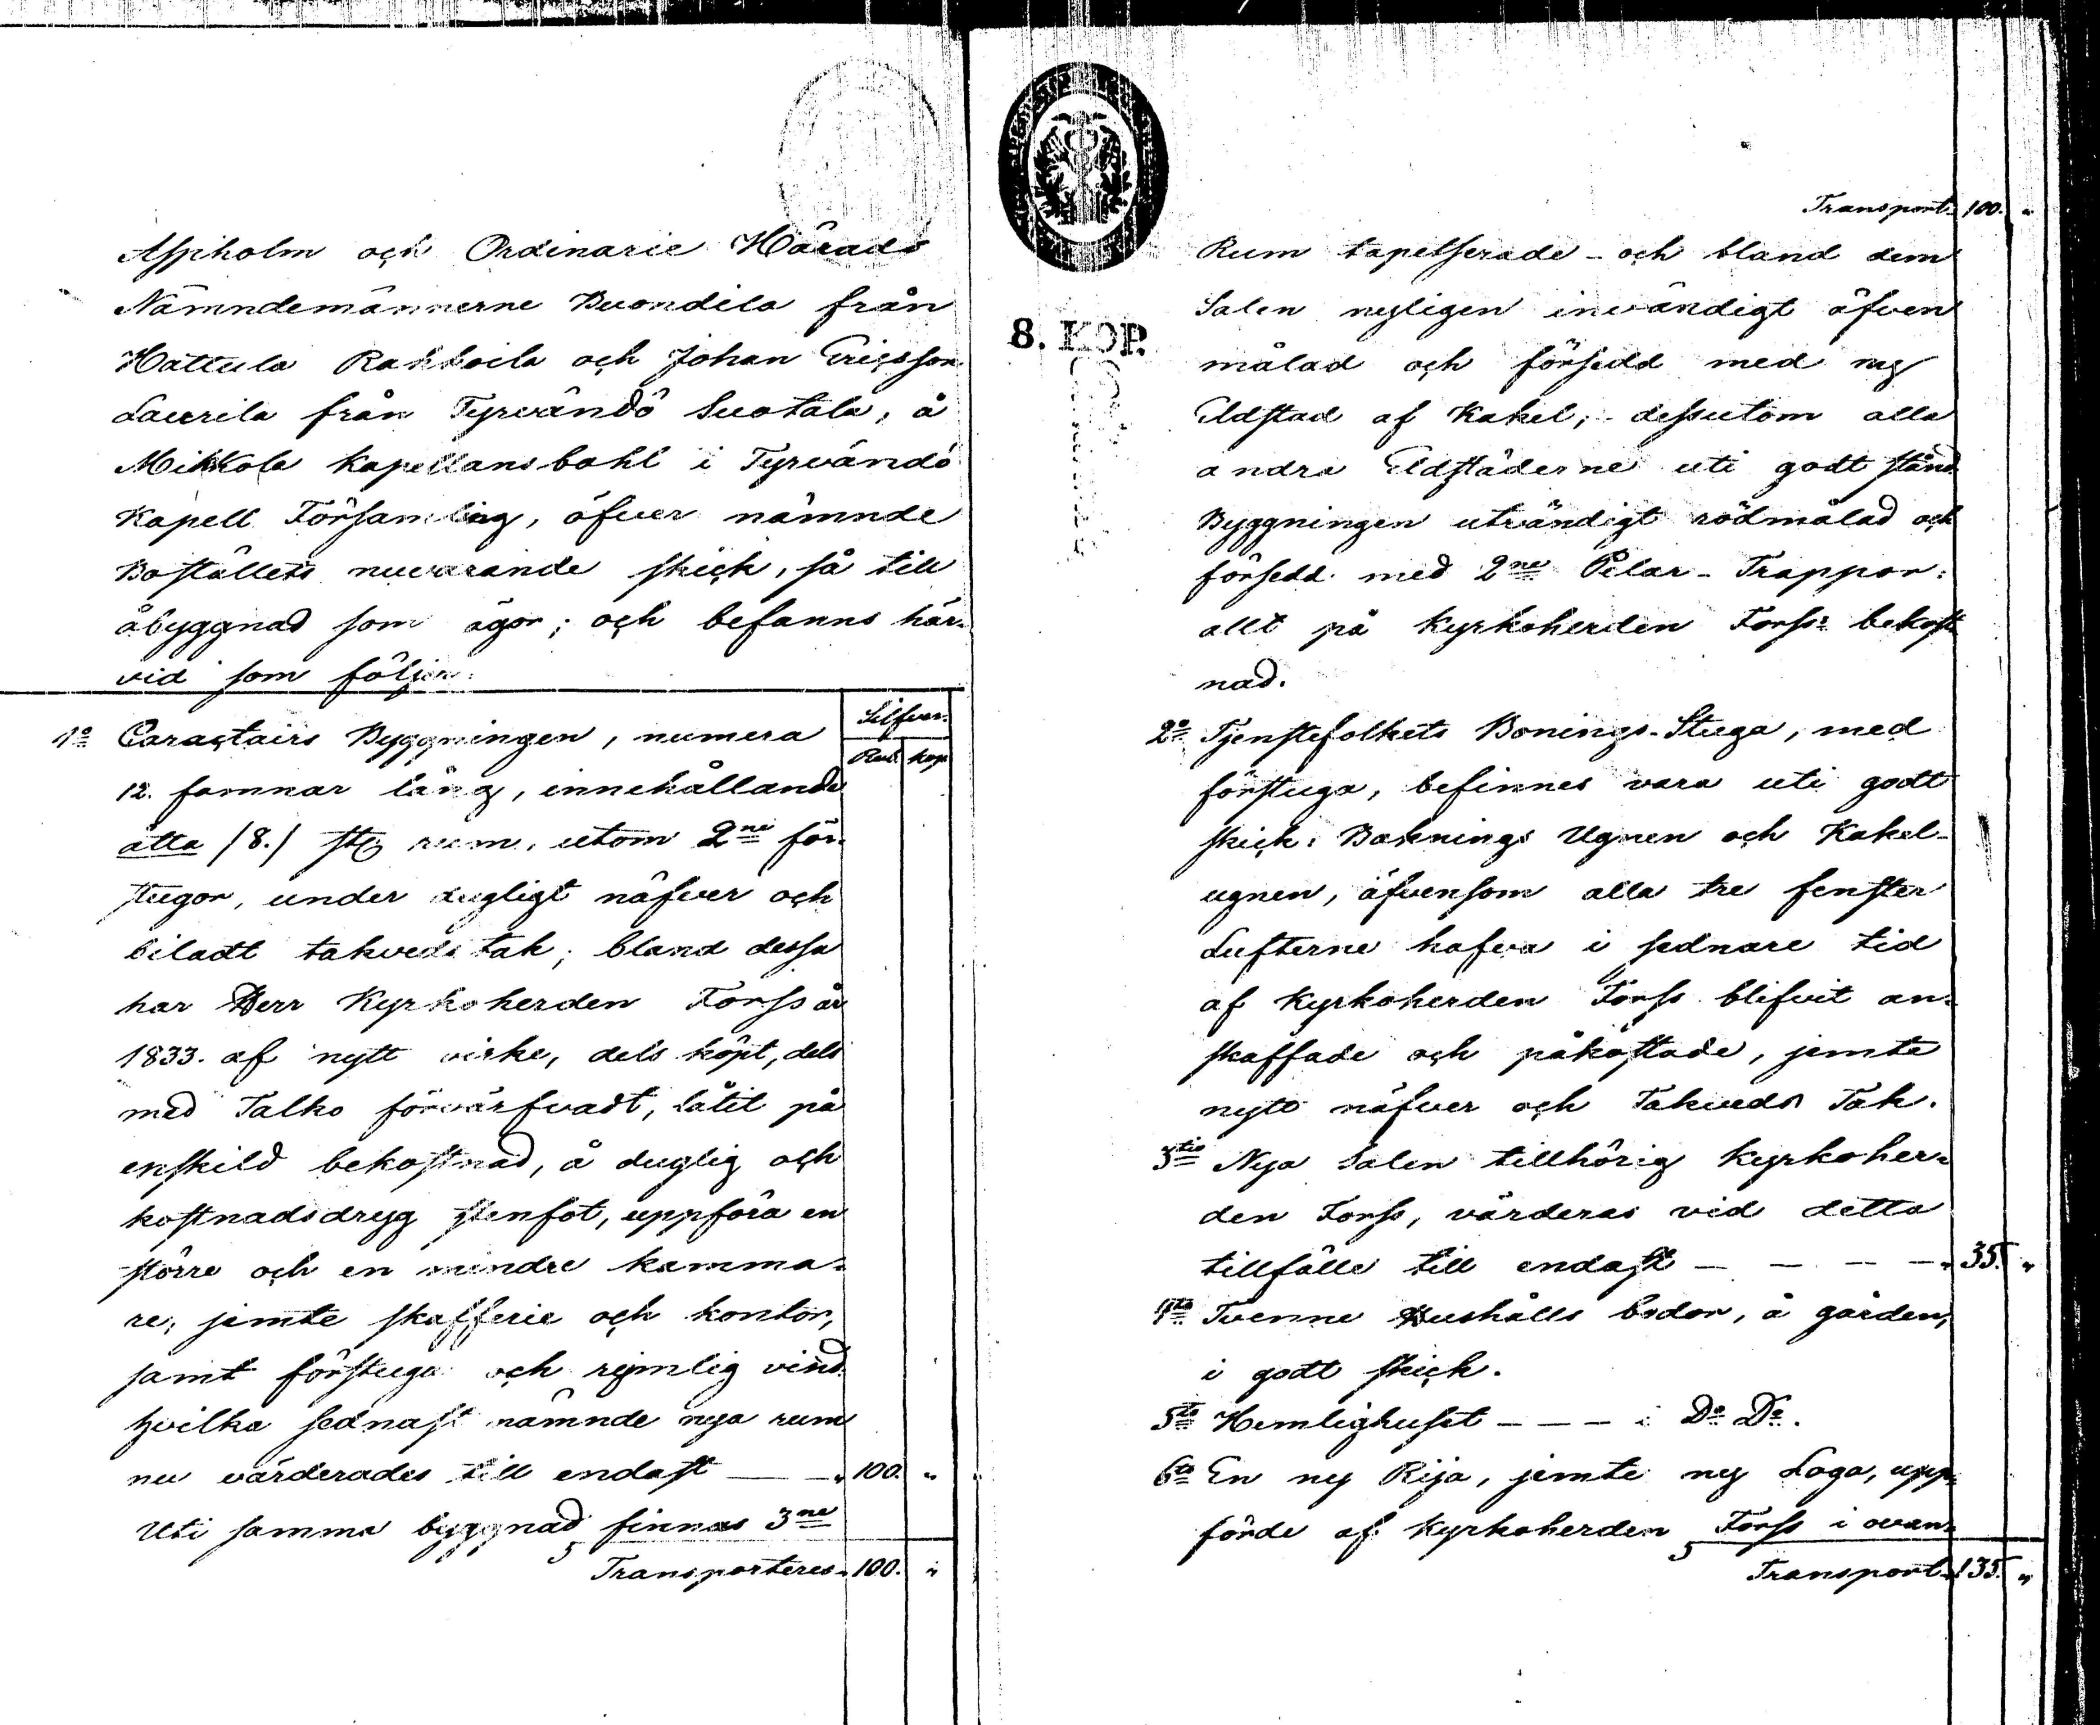 Assiholm och Ordinarie Härads
Nämndemännerne Buondila från
Hattula Rahkoila och Johan Ericsson
Laurila från Tyrvändö Suotala, å
Mikkola Kapellansbohl i Tyrvändö
Kapell Församling, öfver nämnde
Boställets nuvarande skick, så till
åbyggnad som ägor; och befanns här-
vid som följer:
Silfver.
Rub. kop.
1o Caractairs Byggningen, numera
12. famnar lång, innehållande
åtta /8./ st: rum, utom 2ne för-
stugor, under dugligt näfver och
biladt takveds tak; bland dessa
har Herr Kyrkoherden Forss år
1833. af nytt virke, dels köpt, dels
med Talko förvärfvadt, låtit på
enskild bekostnad, å duglig och
kostnadsdryg stenfot, uppföra en
större och en mindre kamma-
re, jemte skafferie och kontor,
samt förstuga och rymlig vind
hvilka sednast nämnde nya rum
nu värderades till endast — — „ 100. „
Uti samma byggnad finnas 3ne
5
Transporteres „ 100. „
8. KOP.
Transport „ 100. „
Rum tapetserade - och bland dem
Salen nyligen invändigt äfven
målad och försedd med ny
Eldstad af Kakel; - dessutom alla
andra Eldstäderne uti godt stånd
Byggningen utvändigt rödmålad och
försedd med 2ne Pelar-Trappor:
allt på Kyrkoherden Forss: bekost
nad.
2o Tjenstefolkets Bonings-Stuga, med
förstuga, befinnes vara uti godt
skick: Baknings Ugnen och Kakel-
ugnen, äfvensom alla tre fenster
Lufterne hafva i sednare tid
af Kyrkoherden Forss blifvit an-
skaffade och påkostade, jemte
nytt näfver och Takveds Tak.
3tio Nya Salen tillhörig Kyrkoher-
den Forss, värderas vid detta
tillfälle till endast — — — — „ 35. „
4to Tvenne Hushålls bodar, å gården,
i godt skick.
5to Hemlighuset — — — i Do Do.
6to En ny Rija, jemte ny Loga, upp-
förde af Kyrkoherden Forss i ovan-
5
Transport „ 135. „